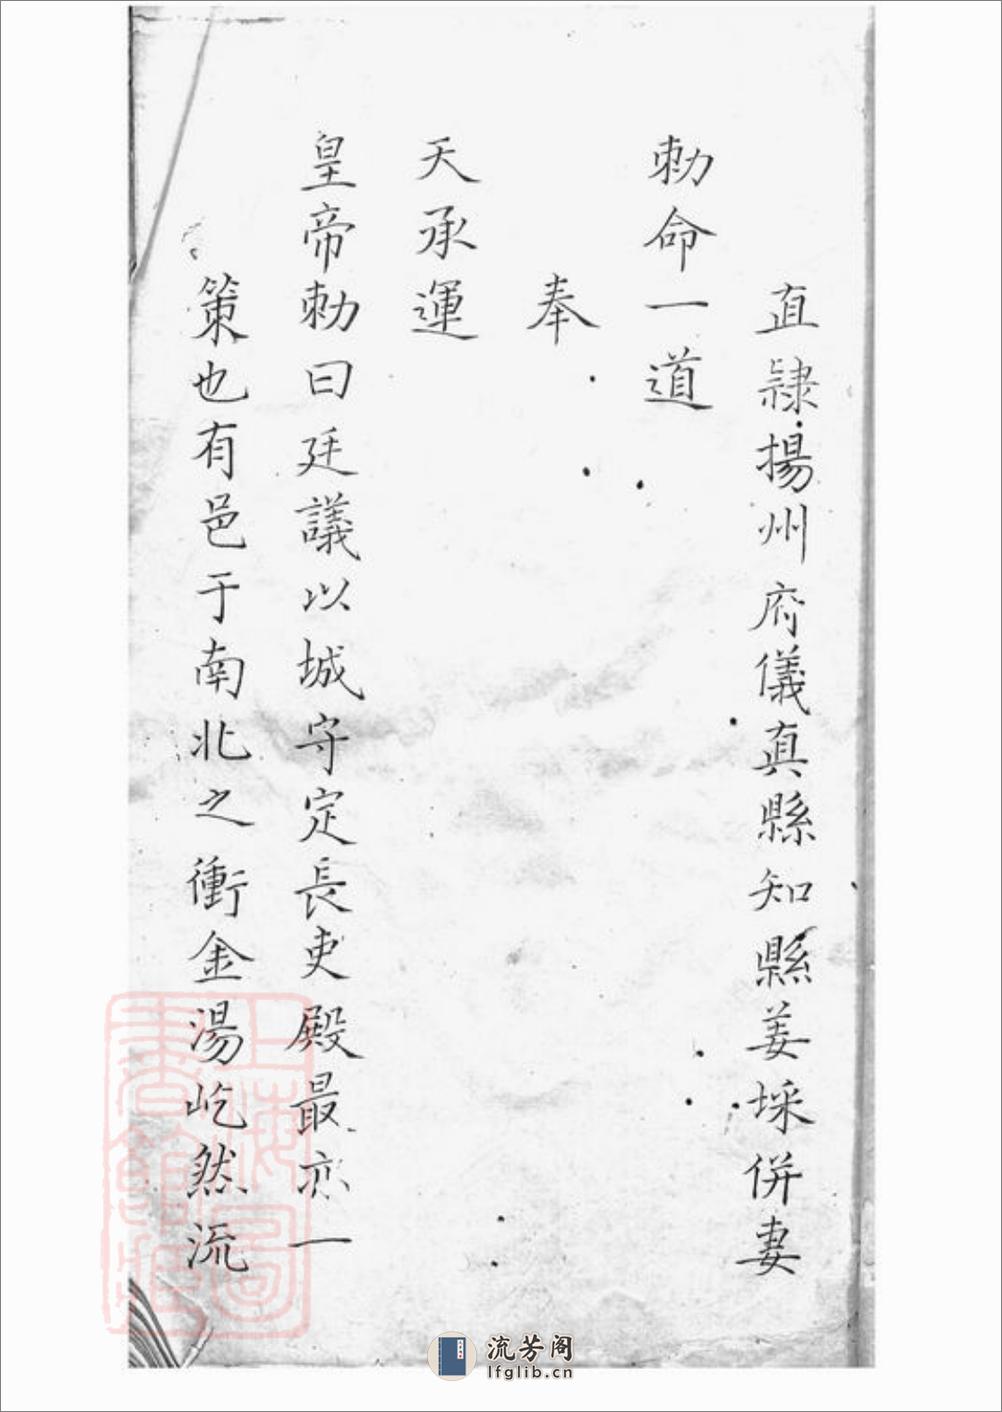 直隷揚州府儀真縣知縣姜埰併妻
勅命一道
奉
天承運
皇帝勅曰廷議以城守定長吏殿最亦一
策也有邑于南北之衝金湯屹然流
上海圖書館藏
流芳阁
lfglib.cn